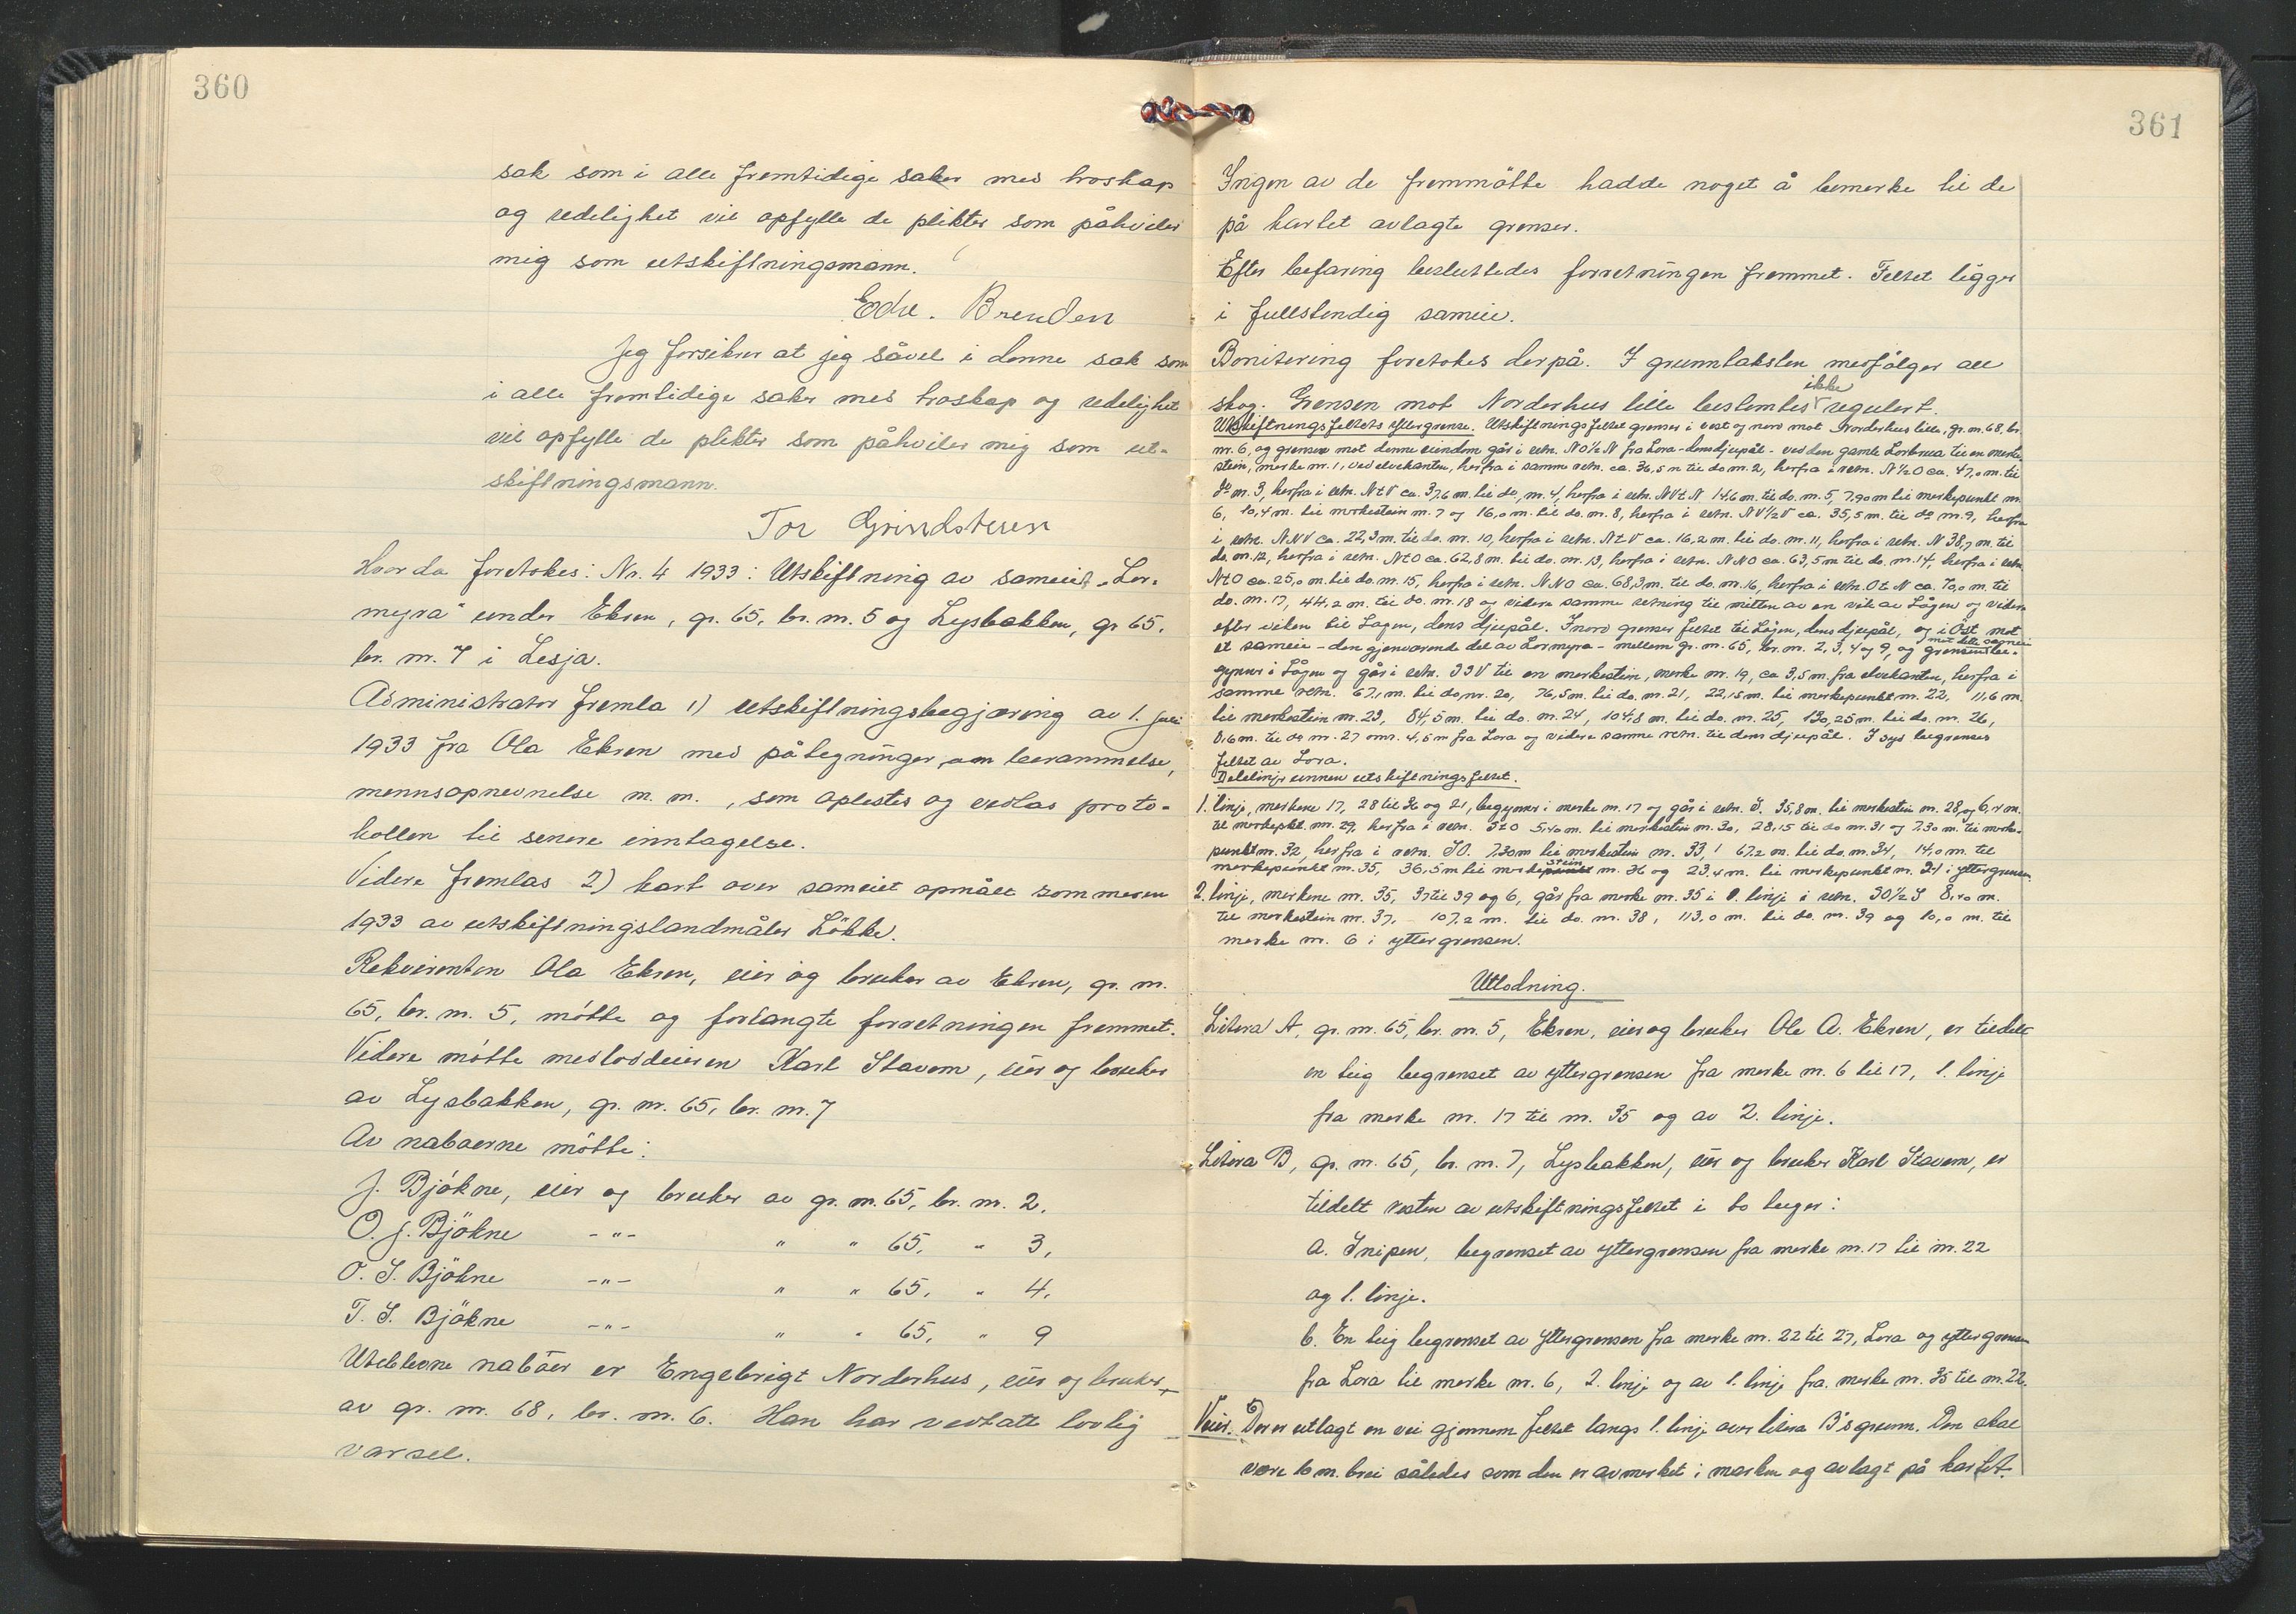 360
sak som i alle fremtidige saker med troskap
og redelighet vil opfylle de plikter som påhviler
mig som utskiftningsmann.
Edv. Brenden
Jeg forsikrer at jeg såvel i denne sak som
i alle fremtidige saker med troskap og redelighet
vil opfylle de plikter som påhviler mig som ut-
skiftningsmann.
Tor Grindstuen
Hvorda foretokes: Nr. 4 1933: Utskiftning av sameiet „Lor-
myra“ under Ekren, gr. 65, br. nr. 5 og Lysbakken, gr 65,
br. nr. 7 i Lesja.
Administrator fremla 1) utskiftningsbegjæring av 1. juli
1933 fra Ola Ekren med påtegninger om berammelse,
mennsopnevnelse m. m., som oplestes og vedlas proto-
kollen til senere inntagelse.
Videre fremlas 2) kart over sameiet opmålt sommeren
1933 av utskiftningslandmåler Løkke.
Rekvirenten Ola Ekren, eier og bruker av Ekren, gr. nr.
65, br. nr. 5, møtte og forlangte forretningen fremmet.
Videre møtte medloddeieren Karl Stavem, eier og bruker
av Lysbakken, gr. nr. 65, br. nr. 7
Av naboerne møtte:
J. Bjökne, eier og bruker av gr. nr. 65, br. nr. 2.
O. J. Bjökne -"- " " 65, " 3,
O. S. Bjökne -"- " " 65, " 4,
T. S. Bjökne -"- " " 65, " 9
Uteblevne naboer er Engebrigt Norderhus, eier og bruker
av gr. nr. 68, br. nr. 6. Han har vedtatt lovlig
varsel.
361
Ingen av de fremmøtte hadde noget å bemerke til de
på kartet avlagte grenser.
Efter befaring besluttedes forretningen fremmet. Feltet ligger
i fullstendig sameie.
Bonitering foretokes derpå. I grunntaksten medfølger all
skog. Grensen mot Norderhus lille bestemtes ikke regulert.
Utskiftningsfeltets yttergrense. Utskiftningsfeltet grenser i vest og nord mot Norderhus lille, gr. nr. 68, br.
nr. 6, og grensen mot denne eiendom går i retn. NO½N fra Lora - dens djupål - ved den gamle Lorbrua til en merke-
stein, merke nr. 1, ved elvekanten, herfra i samme retn. ca. 36,5 m til do nr. 2, herfra i retn. N½O ca. 47,0 m. til
do nr. 3, herfra i retn. NtV ca. 37,6 m. til do, nr. 4, herfra i retn. NVtN 14,6 m. til do. nr. 5, 7,90 m til merkepunkt nr.
6, 10,4 m. til merkestein nr. 7 og 16,0 m. til do. nr. 8, herfra i retn. NV½V ca. 35,5 m. til do nr. 9, herfra
i retn. NNV ca. 22,3 m. til do. nr. 10, herfra i retn. NtV ca. 16,2 m. til do. nr. 11, herfra i retn. N 38,7 m. til
do. nr. 12, herfra i retn. NtO ca. 62,8 m. til do. nr. 13, herfra i retn. NNO ca. 63,5 m til do. nr. 14, herfra i retn
NtO ca. 25,0 m. til do. nr. 15, herfra i retn. NNO ca. 68,3 m. til do. nr. 16, herfra i retn. OtN ca. 70,0 m. til
do. nr. 17, 44,2 m. til do. nr. 18 og videre samme retning til midten av en vik av Lågen og videre
efter viken til Lågen, dens djupål. I nord grenser feltet til Lågen, dens djupål, og i Öst mot
et sameie - den gjenværende del av Lormyra - mellem gr. nr. 65, br. nr. 2, 3, 4 og 9, og grensen mot dette sameie be-
gynner i Lågen og går i retn. SSV til en merkestein, merke nr. 19, ca 3,5 m. fra elvekanten, herfra i
samme retn. 67,1 m. til do, nr. 20, 76,5 m. til do. nr. 21, 22,15 m. til merkepunkt nr. 22, 11,6 m.
til merkestein nr. 23, 84,5 m. til do. nr. 24, 104,8 m. til do. nr. 25, 130,25 m. til do. nr. 26,
0,6 m. til do nr. 27 omr. 4,5 m fra Lora og videre samme retn. til dens djupål. I syd begrenses
feltet av Lora.
Delelinjer innen utskiftningsfeltet.
1. linje, merkene 17, 28 til 36 og 21, begynner i merke nr. 17 og går i retn. S. 35,8 m. til merkestein nr. 28, og 6,4 m.
til merkepkt. nr. 29, herfra i retn. StO 5,40 m. til merkestein nr. 30, 28,15 til do nr. 31 og 7,30 m. til merke-
punkt nr. 32, herfra i retn. SO. 7,30 m til merkestein nr. 33, 67,2 m. til do. nr. 34, 14,0 m. til
merkepunkt nr. 35, 36,5 m til merkestein nr. 36 og 23,4 m. til merkepunkt nr. 21 i yttergrensen.
2. linje, merkene nr. 35, 37 til 39 og 6, går fra merke nr. 35 i 1. linje i retn. SO½S 8,40 m.
til merkestein nr. 37, 107,2 m. til do. nr. 38, 113,0 m. til do. nr. 39 og 10,0 m. til
merke nr. 6 i yttergrensen.
Utlodning.
Litera A, gr. nr. 65, br. nr. 5, Ekren, eier og bruker Ole A. Ekren, er tildelt
en teig begrenset av yttergrensen fra merke nr. 6 til 17, 1. linje
fra merke nr. 17 til nr. 35 og av 2. linje.
Litera B, gr. nr. 65, br. nr. 7, Lysbakken, eier og bruker Karl Stavem, er
tildelt resten av utskiftningsfeltet i to teiger:
a. Snipen, begrenset av yttergrensen fra merke nr. 17 til nr. 22
og 1. linje.
b. En teig begrenset av yttergrensen fra merke nr. 22 til 27, Lora og yttergrensen
fra Lora til merke nr. 6, 2. linje og av 1. linje fra merke nr. 35 til nr. 22.
Veier. Der er utlagt en vei gjennem feltet langs 1. linje over litera B's grunn. Den skal
være 6 m. brei således som den er avmerket i marken og avlagt på kartet.